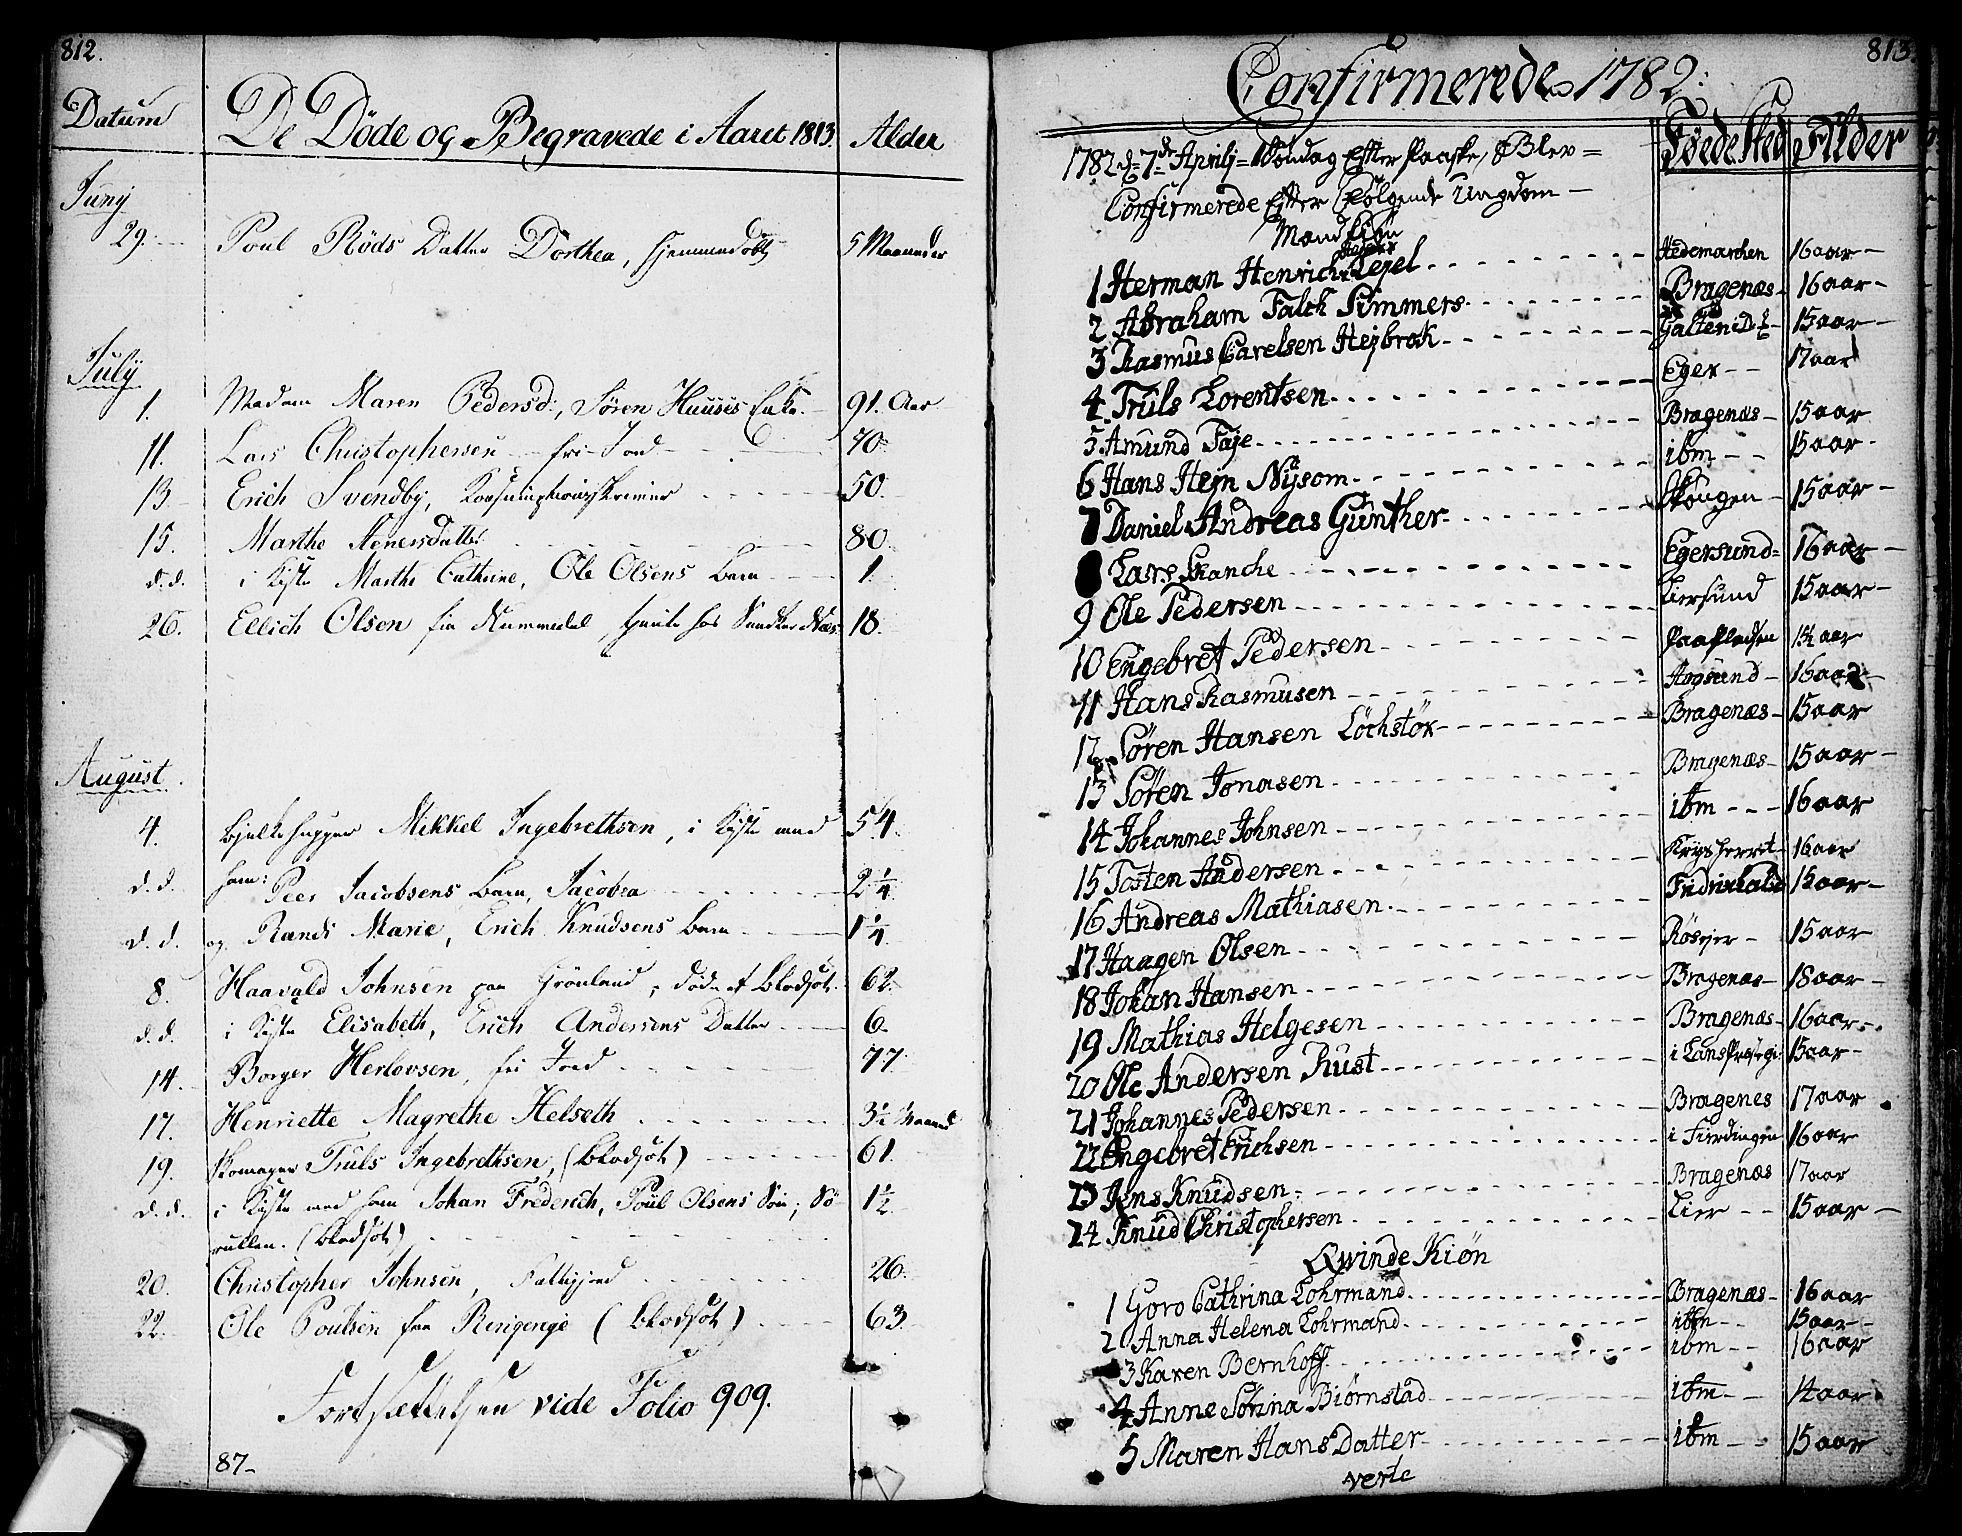 812.
Datum De Døde og Begravede i Aaret 1813. Alder
Juny
29. Poul Røds Datter Dorthea, hjemmedøbt 5 Maaneder
July
1. Madam Maren Pedersd:, Søren Huuses Enke. 91. Aar
11. Lars Christophersen fri Jord 70
13. Erich Svendby, Konsumptionsskriver 50.
15. Marthe Stenersdatter 80.
d. d. i Kiste Marthe Cathrine, Ole Olsens Barn 1.
26. Ellich Olsen fra Nummedal, tiente hos 18.
August.
4. Bjelkehugger Mikkel Ingebrethsen, i Kiste med 54.
d. d. ham: Peer Jacobsens Barn, Jacobea 2 1/4
d. d. og Randi Marie, Erich Knudsens Barn 1 1/4
8. Haavald Johnsen paa Grönland, døde af Blodsot. 62.
d. d. i Kiste Elisabeth, Erich Andersens Datter 6.
14. Borger Herlovsen, fri Jord 77
17. Henriette Magrethe Helseth 3 1/2 Maaned
19. Skomager Truls Ingebrethsen, (Blodsot) 61.
d. d. i Kiste med ham Johan Frederich, Poul Olsens Søn, Sø-
rullen. (Blodsot) 1 1/2
20. Christopher Johnsen, Fattigjord 26.
22. Ole Poulsen fra Ringerige (Blodsot) 63.
Fortsættelsen vide Folio 909.
87.
813.
Confirmerede 1782:
Føede Sted Alder
1782 d: 7de Aprilj = 1 Søndag Efter Paaske, Blev =
Confirmerede Efter Følgende Ungdom
Mandkiøn
1 Herman Henrich Lejel Hedemarchen 16 aar
2 Abraham Falch Simmers Bragenæs 16 aar
3 Rasmus Carelsen Hejbrok 15 aar
4 Truls Lorentsen Eger 17 aar
5 Amund Faje Bragenæs 15 aar
6 Hans Hejn Nijsom ibm 15 aar
7 Daniel Andreas Günther Skougen 15 aar
8 Lars Skanche Egersund 16 aar
9 Ole Pedersen Liersund 15 aar
10 Engebret Pedersen Paa Pladsen aar
11 Hans Rasmusen Hogsund 16 aar
12 Søren Hansen Löchstör Bragenæs 15 aar
13 Søren Jonasen Bragenæs 15 aar
14 Johannes Johnsen ibm 16 aar
15 Tosten Andersen Krydsherret 16 aar
16 Andreas Mathiasen Fridrixhald 15 aar
17 Haagen Olsen Røsejer 15 aar
18 Johan Hansen Bragenæs 18 aar
19 Mathias Helgesen Bragenæs 16 aar
20 Ole Andersen Rust 15 aar
21 Johannes Pedersen Bragenes 17 aar
22 Engebret Erichsen i Fierdingen 16 aar
23 Jens Knudsen Bragenæs 17 aar
24 Knud Christophersen Lier 15 aar
Qwinde Kiøn
1 Goro Cathrina Lohrmand Bragenæs 16 aar
2 Anna Helena Lohrmand ibm 15 aar
3 Karen Bernhoff ibm 16 aar
4 Anne Sørina Biørnstad ibm 14 aar
5 Maren Hans Datter ibm 15 aar
verte